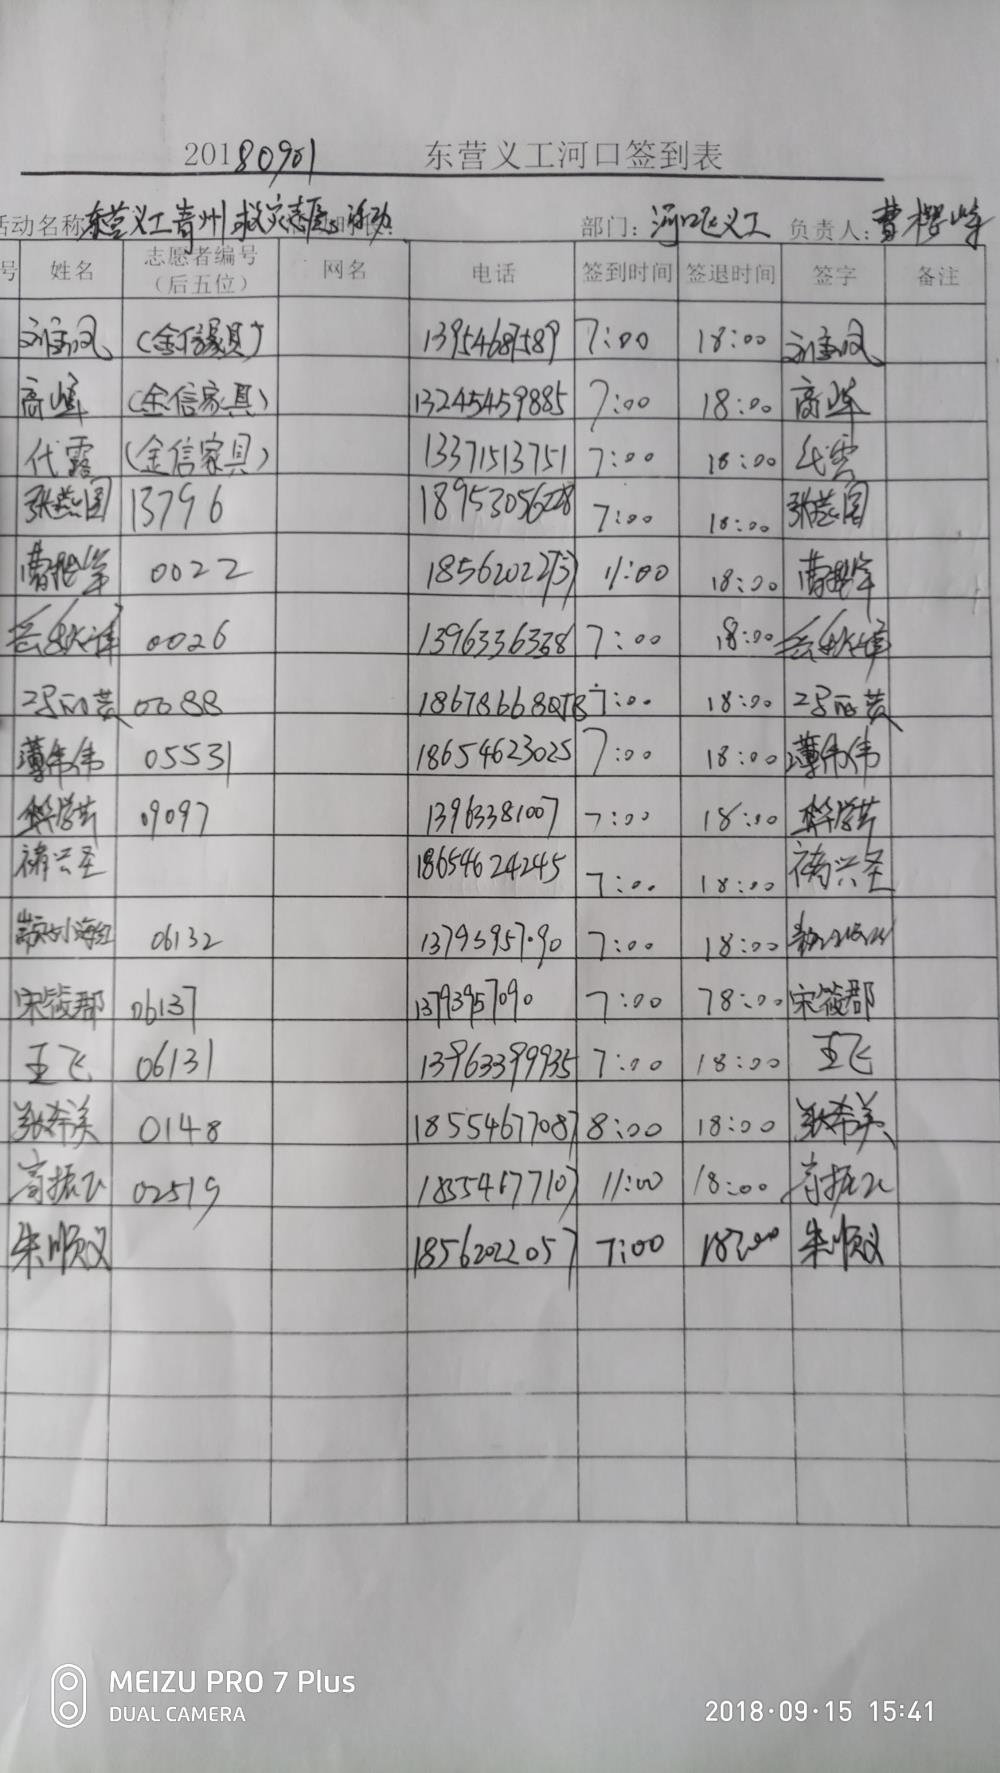 20180901 东营义工河口签到表
活动名称 东营义工青州救灾志愿 活动 部门: 河口飞义工 负责人: 曹樱峰
号 姓名 志愿者编号 网名 电话 签到时间 签退时间 签字 备注
（后五位）
(金信家具) 13954687589 7:00 18:00
商峰 (金信家具) 13245459885 7:00 18:00 商峰
代露 (金信家具) 13371513751 7:00 18:00 代雪
张燕图 13796 7:00 18:00 张燕图
曹樱峰 0022 11:00 18:00 曹樱峰
0026 13963363 7:00 18:00
冯丽黄 0088 18678668 7:00 18:00 冯丽黄
薄伟伟 05531 18654623025 7:00 18:00 薄伟伟
09097 13963381007 7:00 18:00
褚兴圣 18654624245 7:00 18:00 褚兴圣
小海红 06132 7:00 18:00
宋筱郡 06137 13793957090 7:00 78:00 宋筱郡
王飞 06131 13963399935 7:00 18:00 王飞
张希美 0148 18554677087 8:00 18:00 张希美
高振飞 02519 18554677107 11:00 18:00 高振飞
朱顺义 18562022057 7:00 18:00 朱顺义
MEIZU PRO 7 Plus
DUAL CAMERA
2018·09·15 15:41